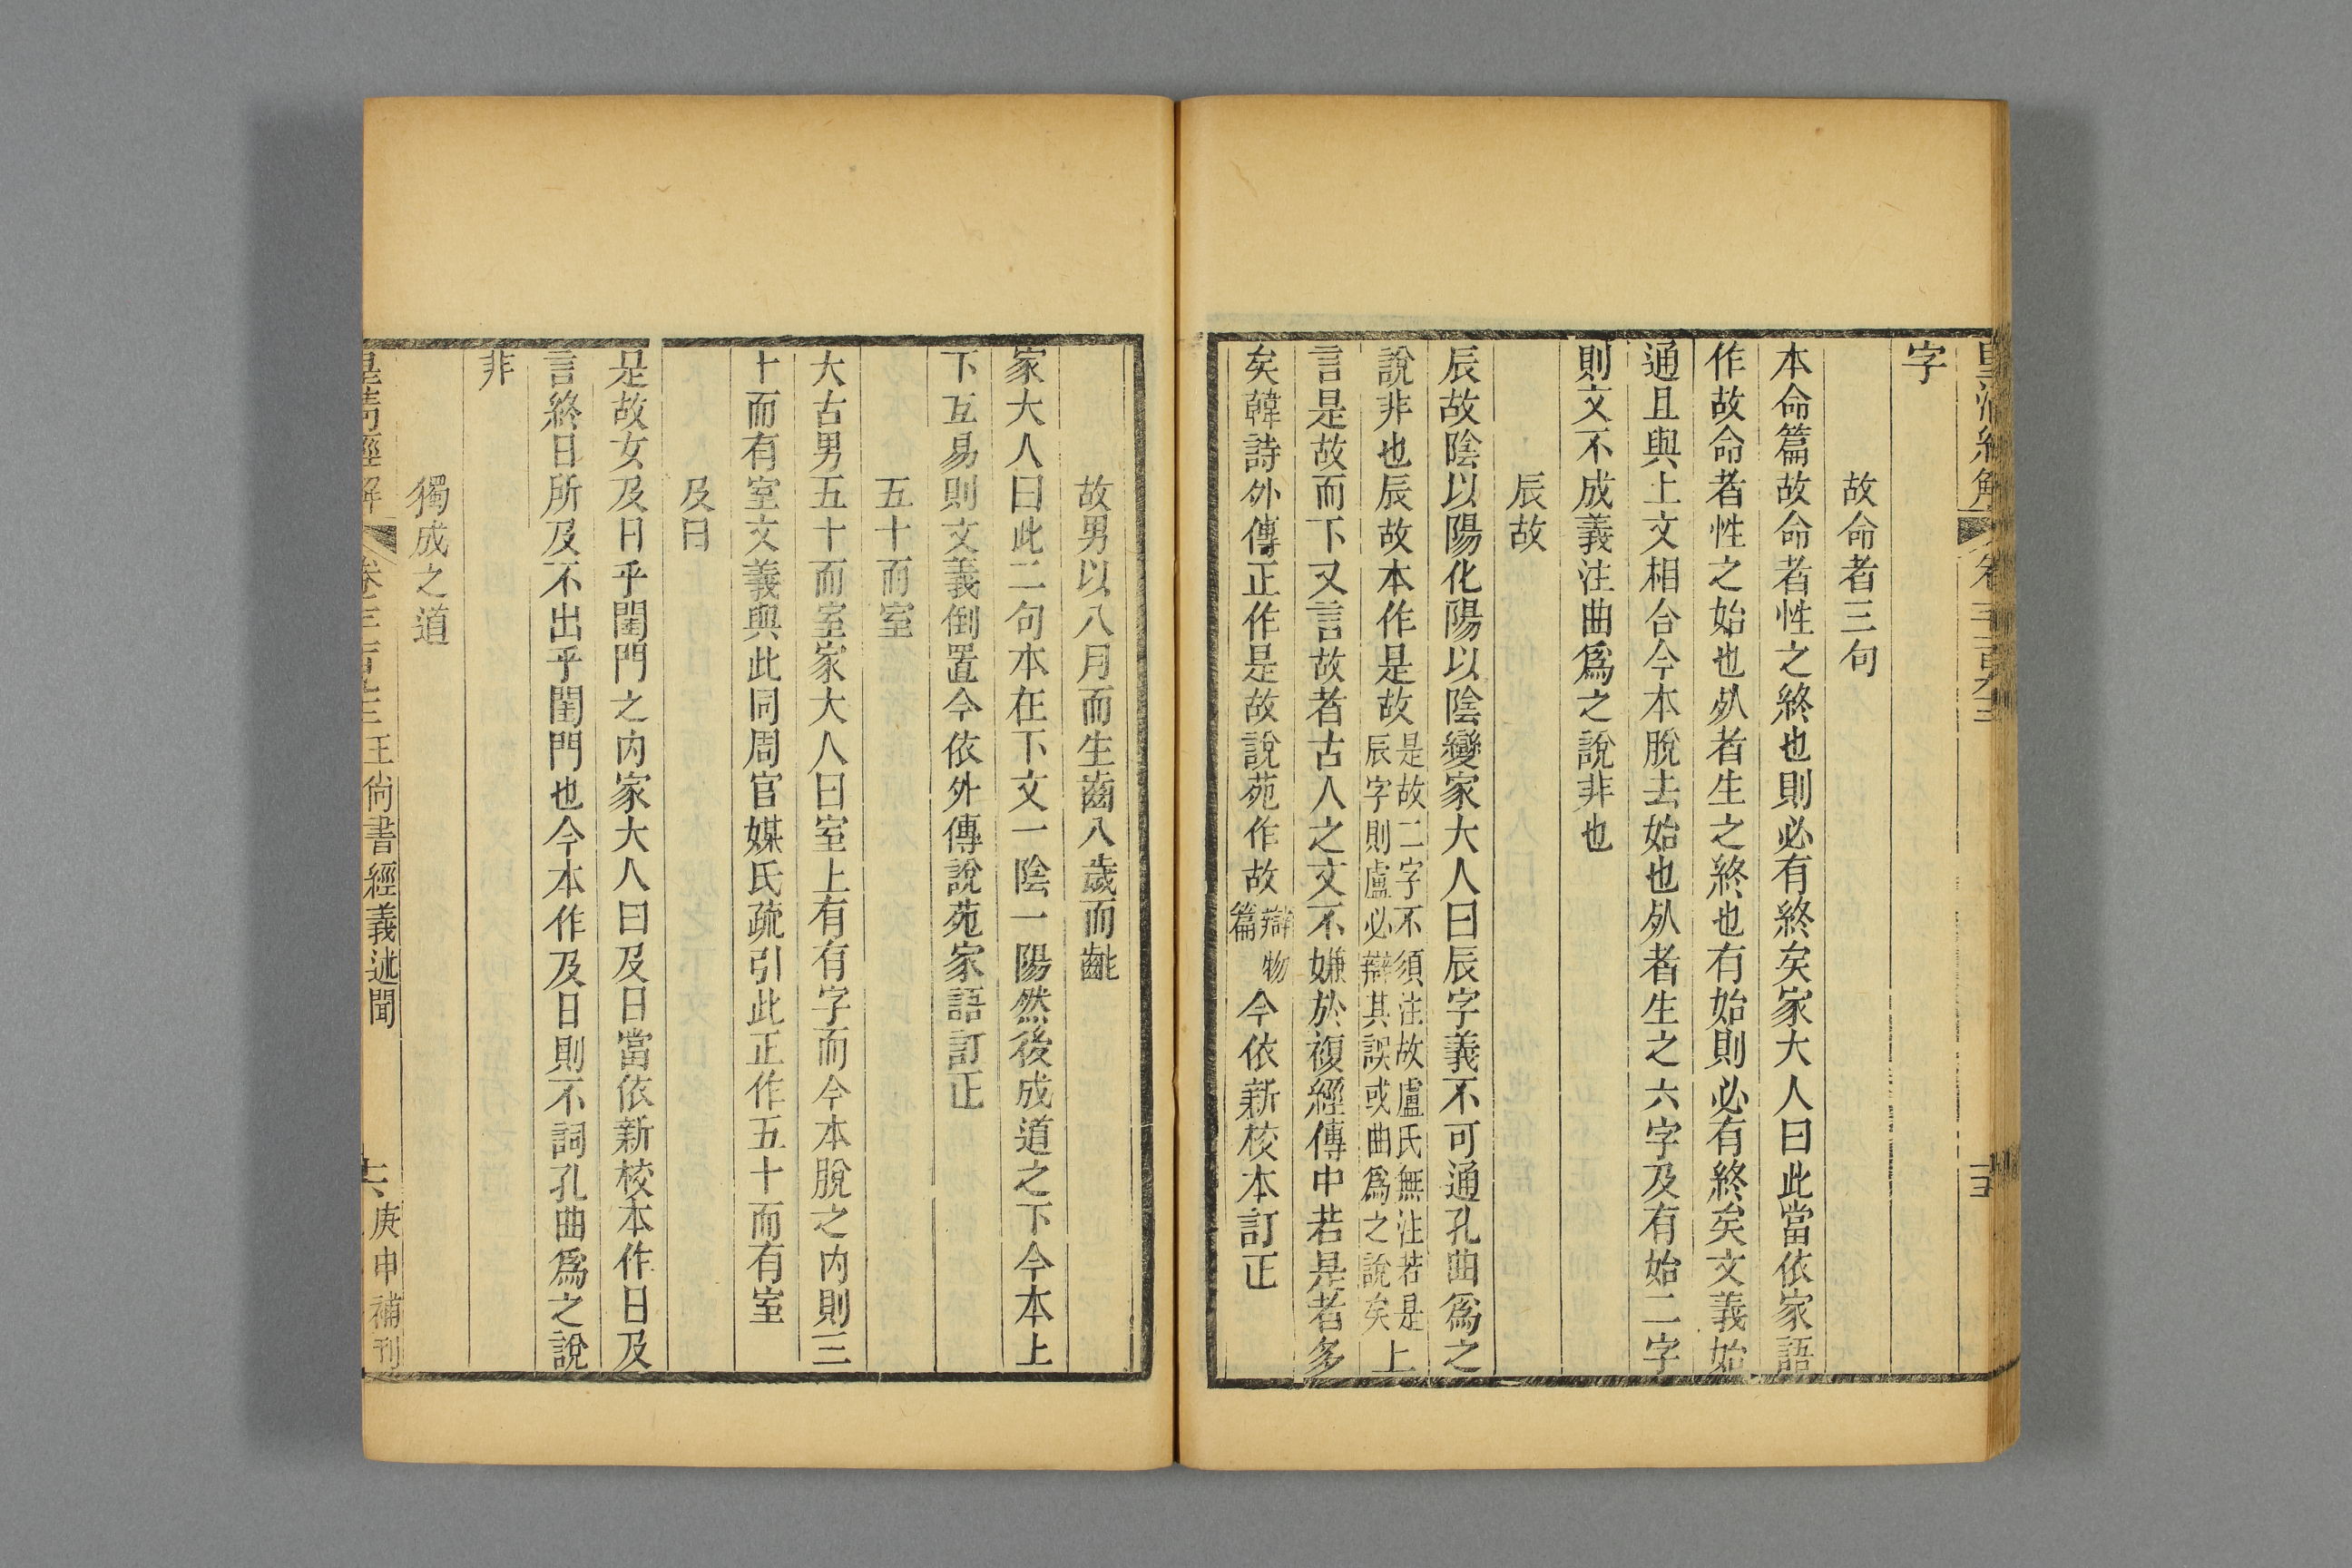 字
故命者三句
本命篇故命者性之終也則必有終矣家大人曰此當依家語
作故命者性之始也㱔者生之終也有始則必有終矣文義始
通且與上文相合今本脫去始也㱔者生之六字及有始二字
則文不成義注曲爲之說非也
辰故
辰故陰以陽化陽以陰變家大人曰辰字義不可通孔曲爲之
說非也辰故本作是故是故二字不須注故盧氏無注若是辰字則盧必辯其誤或曲爲之說矣上
言是故而下又言故者古人之文不嫌於複經傳中若是者多
矣韓詩外傳正作是故說苑作故辯物篇今依新校本訂正
故男以八月而生齒八歲而齔
家大人曰此二句本在下文一陰一陽然後成道之下今本上
下互易則文義倒置今依外傳說苑家語訂正
五十而室
大古男五十而室家大人曰室上有有字而今本脫之內則三
十而有室文義與此同周官媒氏疏引此正作五十而有室
及日
是故女及日乎閨門之內家大人曰及日當依新校本作日及
言終日所及不出乎閨門也今本作及日則不詞孔曲爲之說
非
獨成之道
皇清經解 王尙書經義述聞 庚申補刊